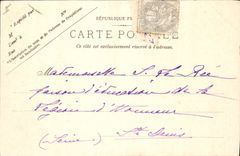 RÉPUBLIQUE F
CARTE POSTALE
Ce côté est exclusivement réservé à l'adresse.
M
Mademoiselle S. Le Rée
maison d'éducation de la
Légion d'Honneur
(Seine) St Denis